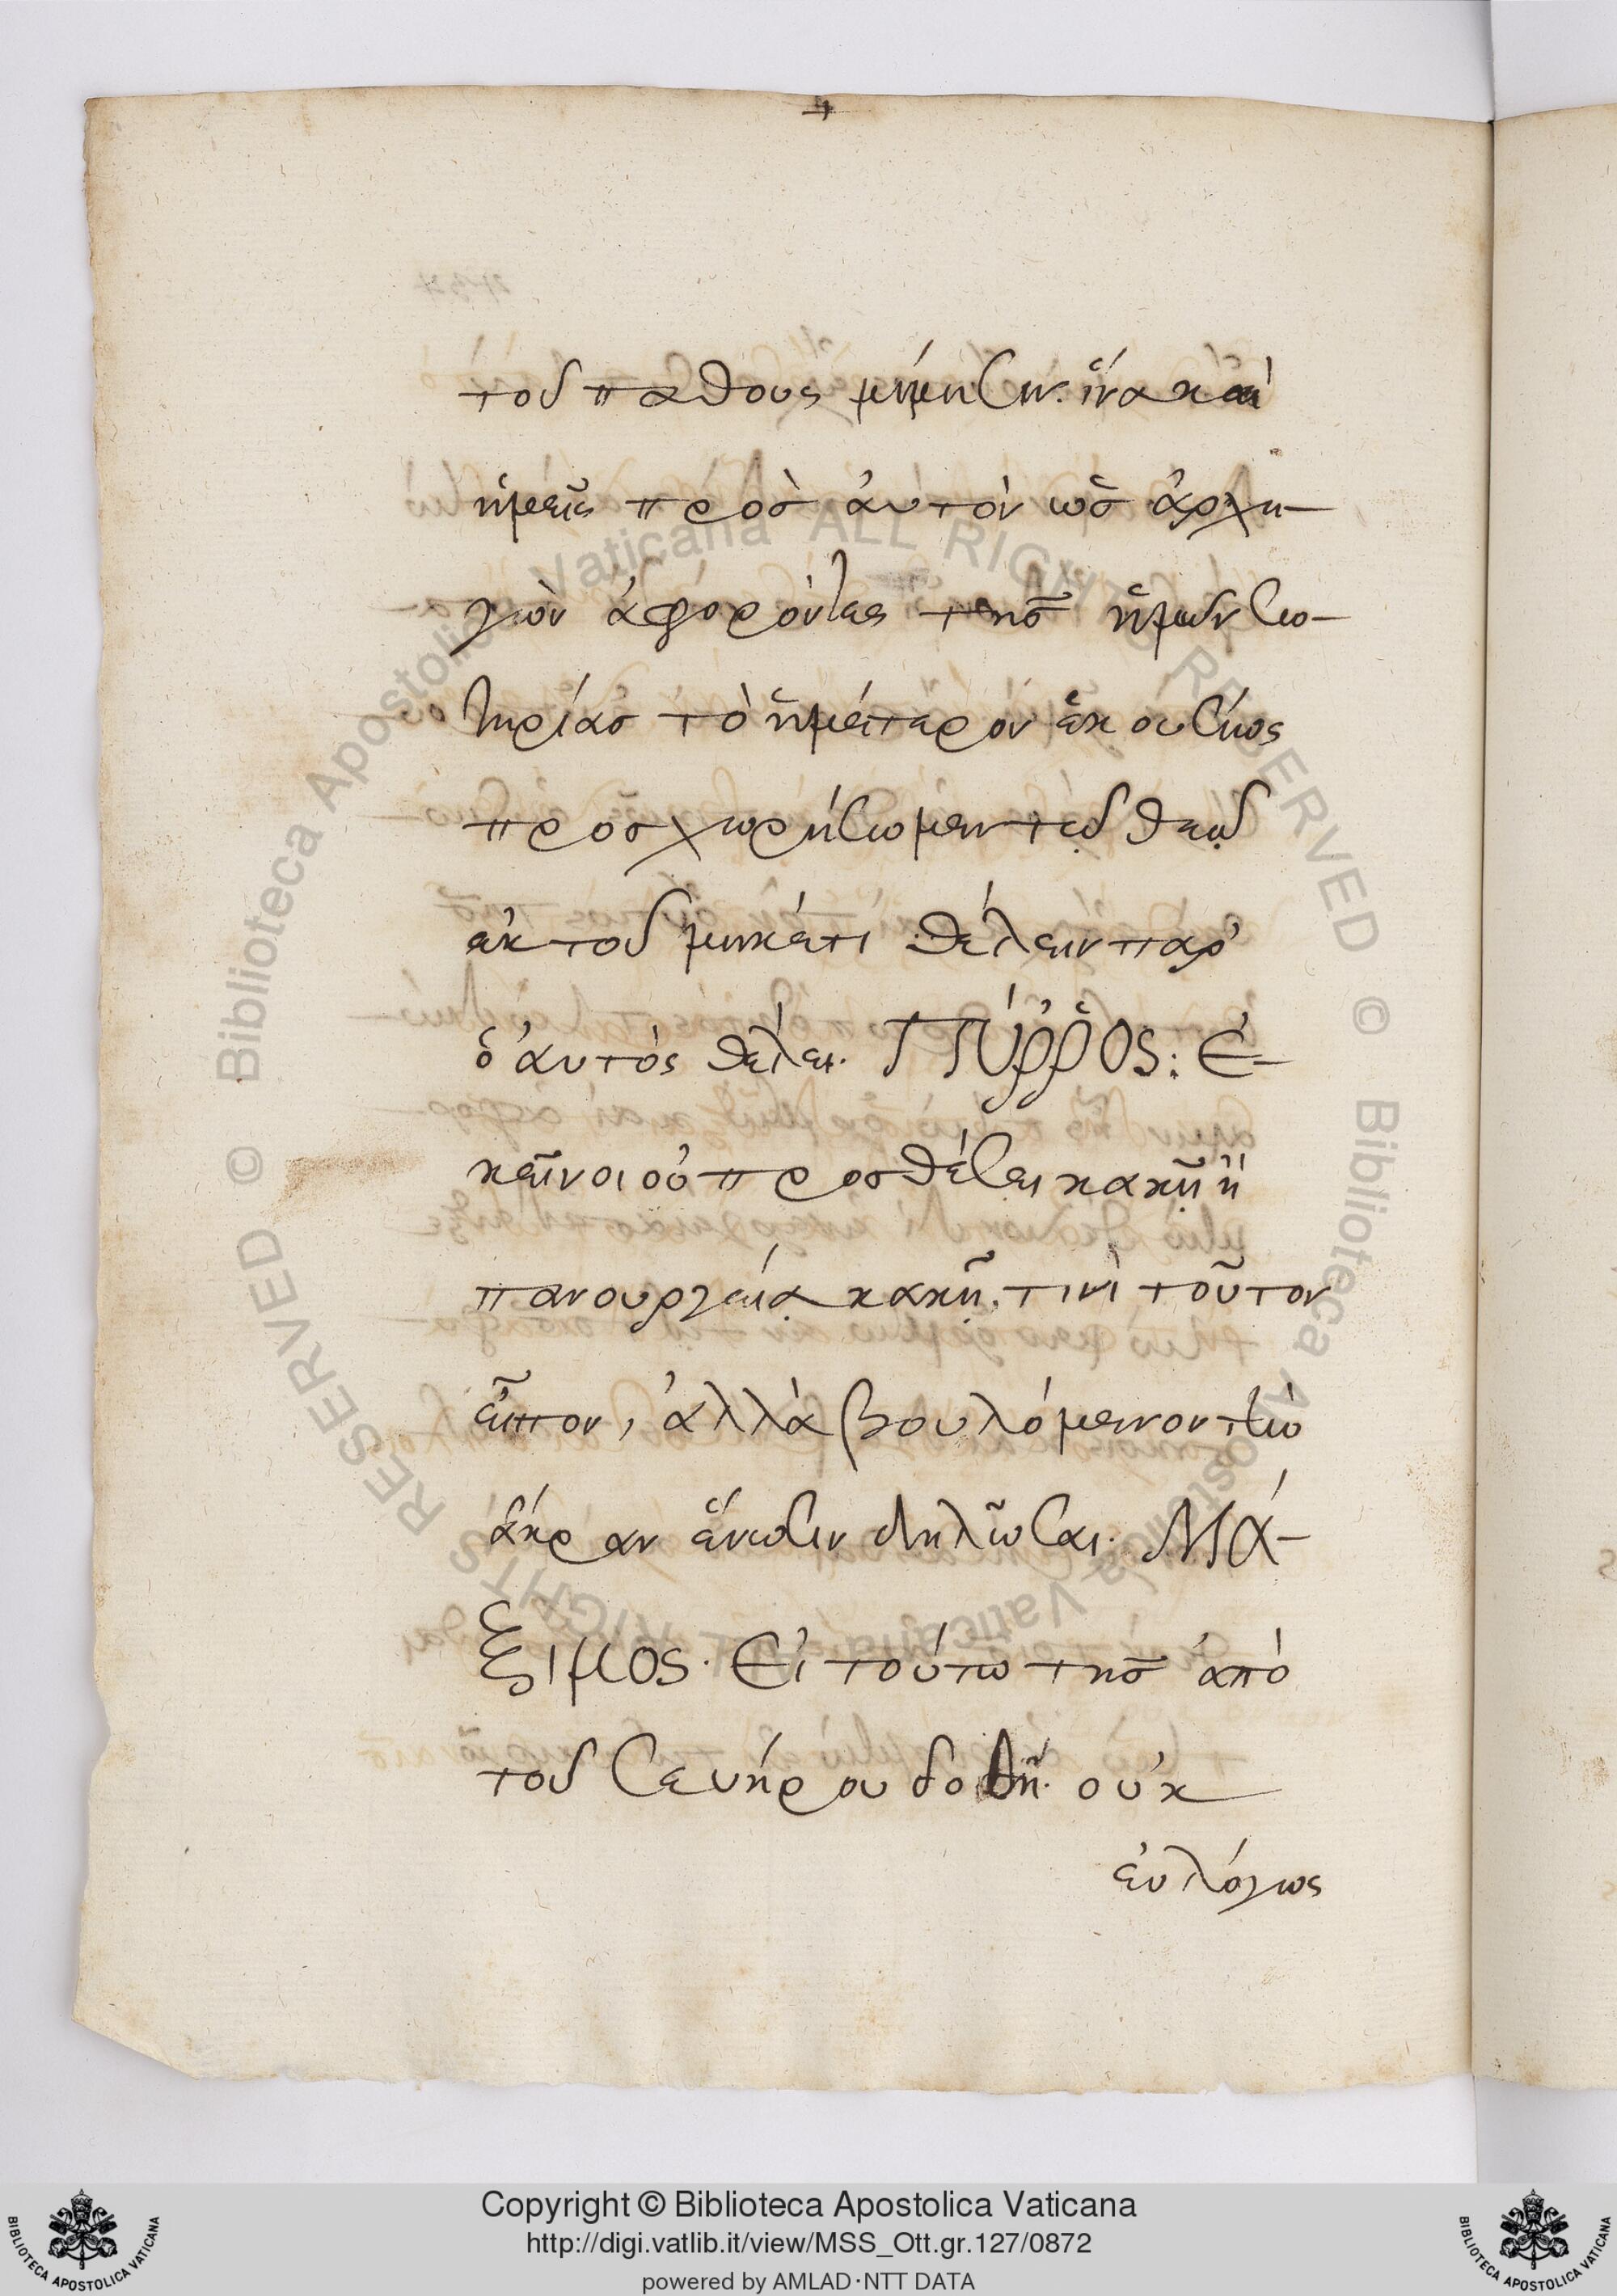 τοῦ παθους μίμησιν. ἵνα καὶ
ἡμεῖς πρὸς ἀυτὸν ὡς ἀρχη-
γὸν ἀφορόντες της ἡμῶν σω-
τηρίας τὸ ἡμέτερον ἑκουσίως
προσχωρήσωμεν τῷ θεῷ
ἐκ τοῦ μηκέτι θέλειν παρ'
ὁ ἀυτὸς θέλει. ΠΎῤῥΟΣ: Ἐ-
κεῖνοι οὐ προσθέσει κακῇ ἢ
πανουργείᾳ κακῇ. τινὶ τοῦτον
εἶπον, ἀλλὰ βουλόμενον τὴν
ἄκραν ἕνωσιν δηλῶσαι. ΜΆ-
ξιμος. Εἰ τούτω της ἀπὸ
τοῦ Σευήρου δοθῆ. οὐκ
εὐλόγως
Copyright © Biblioteca Apostolica Vaticana
http://digi.vatlib.it/view/MSS_Ott.gr.127/0872
powered by AMLAD·NTT DATA
BIBLIOTECA APOSTOLICA VATICANA
BIBLIOTECA APOSTOLICA VATICANA
© Biblioteca Apostolica Vaticana ALL RIGHTS RESERVED
© Biblioteca Apostolica Vaticana ALL RIGHTS RESERVED